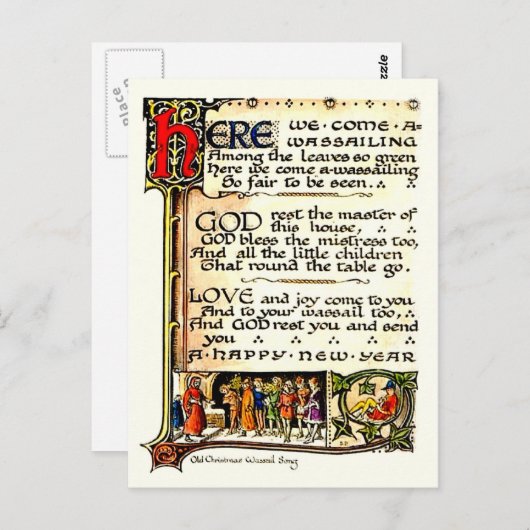 HERE WE COME A-
WASSAILING
Among the leaves so green
Here we come a-wassailing
So fair to be seen
GOD rest the master of
this house,
GOD bless the mistress too,
And all the little children
That round the table go.
LOVE and joy come to you
And to your wassail too,
And GOD rest you and send
you
A HAPPY NEW YEAR
Old Christmas Wassail Song
Place
zazzle